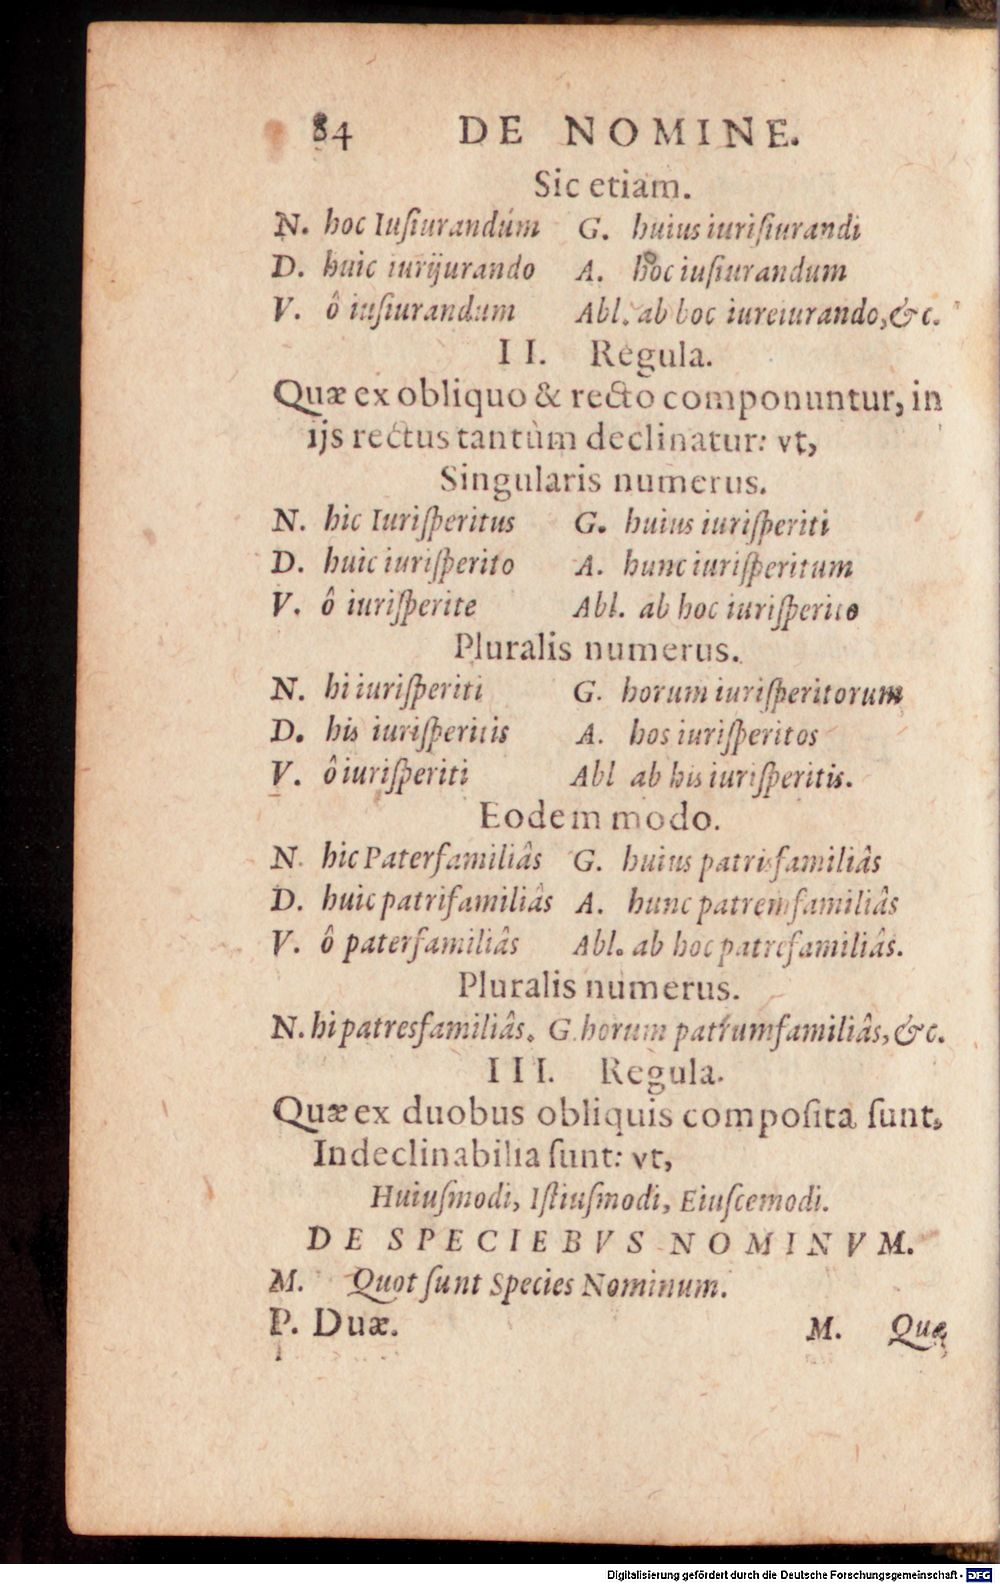 84 DE NOMINE.
Sic etiam.
N. hoc Iuſiurandúm G. huius iuriſiurandi
D. huic iurijurando A. hoc iuſiurandum
V. ô iuſiurandum Abl. ab hoc iureiurando, &c.
II. Regula.
Quæ ex obliquo & recto componuntur, in
ijs rectus tantùm declinatur: vt,
Singularis numerus.
N. hic Iuriſperitus G. huius iuriſperiti
D. huic iuriſperito A. hunc iuriſperitum
V. ô iuriſperite Abl. ab hoc iuriſperito
Pluralis numerus.
N. hi iuriſperiti G. horum iuriſperitorum
D. his iuriſperitis A. hos iuriſperitos
V. ô iuriſperiti Abl ab his iuriſperitis.
Eodem modo.
N. hic Paterfamiliâs G. huius patrisfamiliâs
D. huic patrifamiliâs A. hunc patremfamiliâs
V. ô paterfamiliâs Abl. ab hoc patrefamiliâs.
Pluralis numerus.
N. hi patresfamiliâs. G. horum patrumfamiliâs, &c.
III. Regula.
Quæ ex duobus obliquis compoſita ſunt,
Indeclinabilia ſunt: vt,
Huiuſmodi, Iſtiuſmodi, Eiuſcemodi.
DE SPECIEBVS NOMINVM.
M. Quot ſunt Species Nominum.
P. Duæ. M. Quæ
Digitalisierung gefördert durch die Deutsche Forschungsgemeinschaft - DFG